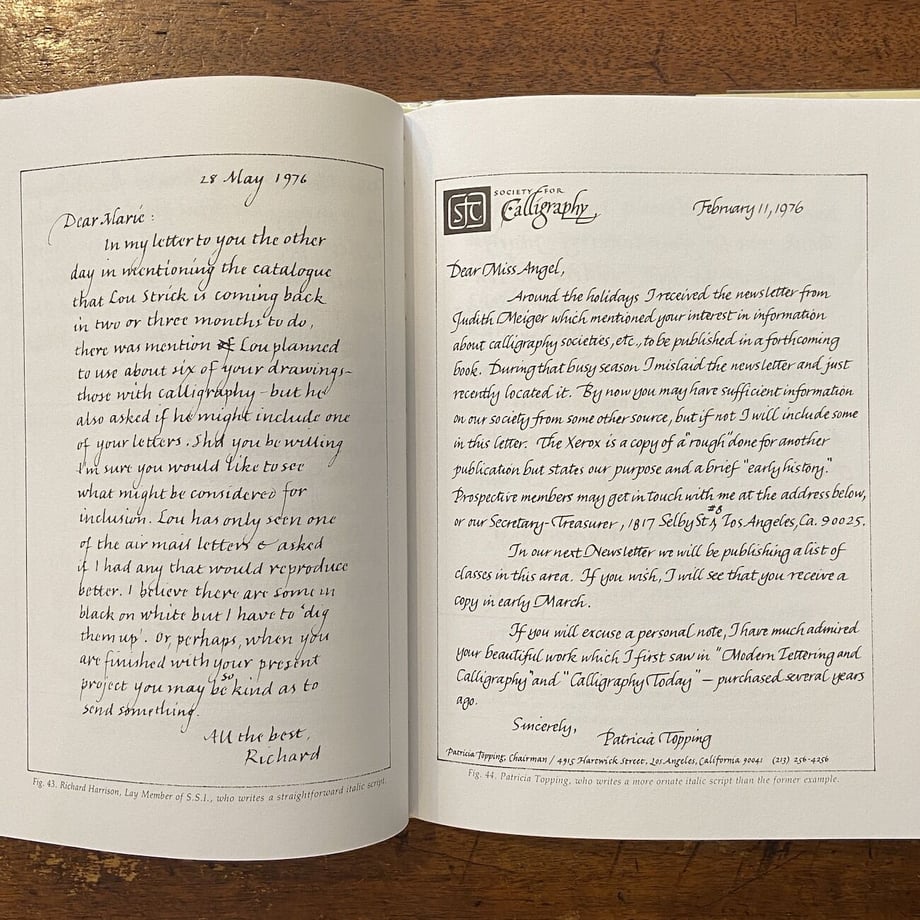 28 May 1976
Dear Marie :
In my letter to you the other
day in mentioning the catalogue
that Lou Strick is coming back
in two or three months to do,
there was mention of Lou planned
to use about six of your drawings–
those with calligraphy – but he
also asked if he might include one
of your letters. Shd you be willing
I'm sure you would like to see
what might be considered for
inclusion. Lou has only seen one
of the air mail letters & asked
if I had any that would reproduce
better. I believe there are some in
black on white but I have to 'dig
them up'. Or, perhaps, when you
are finished with your present
project you may be so kind as to
send something.
All the best,
Richard
Fig. 43. Richard Harrison, Lay Member of S.S.I., who writes a straightforward italic script.
sfc
SOCIETY FOR
Calligraphy
February 11, 1976
Dear Miss Angel,
Around the holidays I received the newsletter from
Judith Meiger which mentioned your interest in information
about calligraphy societies, etc., to be published in a forthcoming
book. During that busy season I mislaid the newsletter and just
recently located it. By now you may have sufficient information
on our society from some other source, but if not I will include some
in this letter. The Xerox is a copy of a "rough" done for another
publication but states our purpose and a brief "early history."
Prospective members may get in touch with me at the address below,
or our Secretary-Treasurer, 1817 Selby St #8, Los Angeles, Ca. 90025.
In our next Newsletter we will be publishing a list of
classes in this area. If you wish, I will see that you receive a
copy in early March.
If you will excuse a personal note, I have much admired
your beautiful work which I first saw in "Modern Lettering and
Calligraphy" and "Calligraphy Today" – purchased several years
ago.
Sincerely,
Patricia Topping
Patricia Topping, Chairman / 4915 Hartwick Street, Los Angeles, California 90041 (213) 256-4256
Fig. 44. Patricia Topping, who writes a more ornate italic script than the former example.